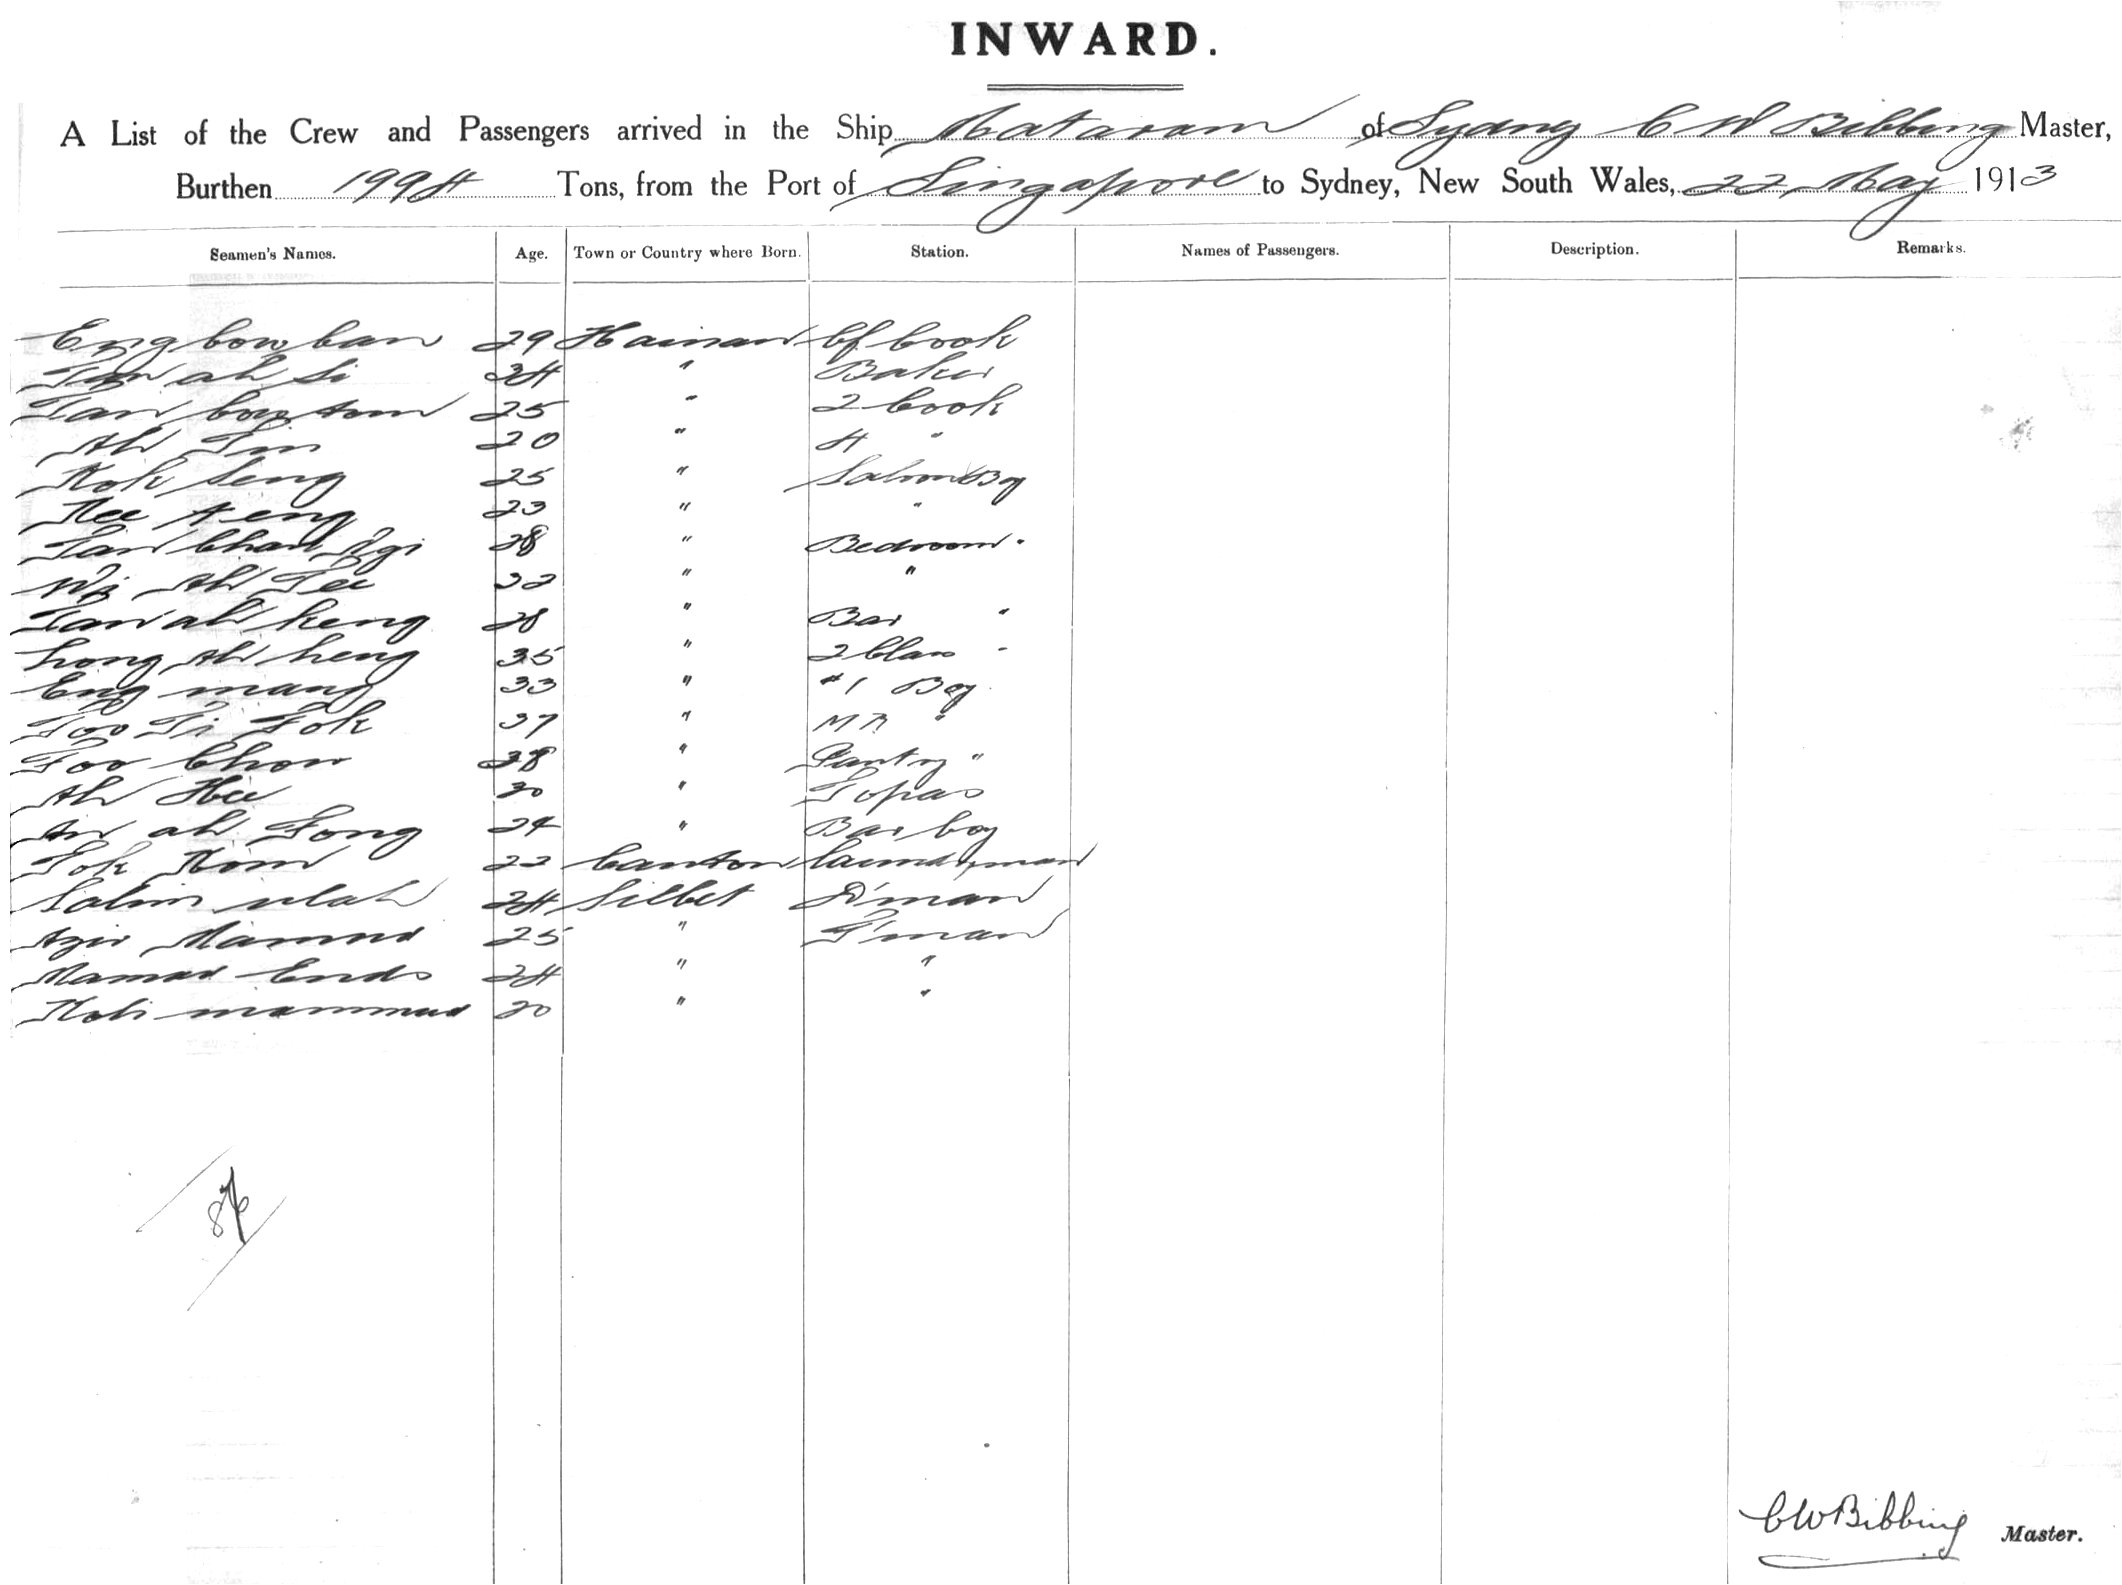 INWARD.
A List of the Crew and Passengers arrived in the Ship Mataram of Sydney C W Bibbing Master,
Burthen 1994 Tons, from the Port of Singapore to Sydney, New South Wales, 22 May 1913
Seamen's Names. Age. Town or Country where Born. Station. Names of Passengers. Description. Remarks.
Eng Cow Can 29 Hainan Cf Cook
Tan ah Si 34 " Baker
Tan Cow tom 25 " 2 Cook
Ah Tin 20 " 4 "
Kok Seng 25 " Saloon Boy
Kee teng 23 " "
Tan Chan 28 " Bedroom "
Ah Tee 32 " "
Tan ah keng 28 " Bar "
Long Ah heng 35 " 2 Class "
Eng mang 33 " #1 Boy
Foo Ti Fok 37 " M R "
Foo Chow 38 " Pantry "
Ah Hee 30 " Topas
ah Fong 24 " Bar boy
Fok Kom 22 Canton Laundryman
Salim ulah 34 Silhet D'man
Azir Mamud 25 " F'man
Mamad Ends 24 " "
Koli mammud 20 " "
C W Bibbing Master.